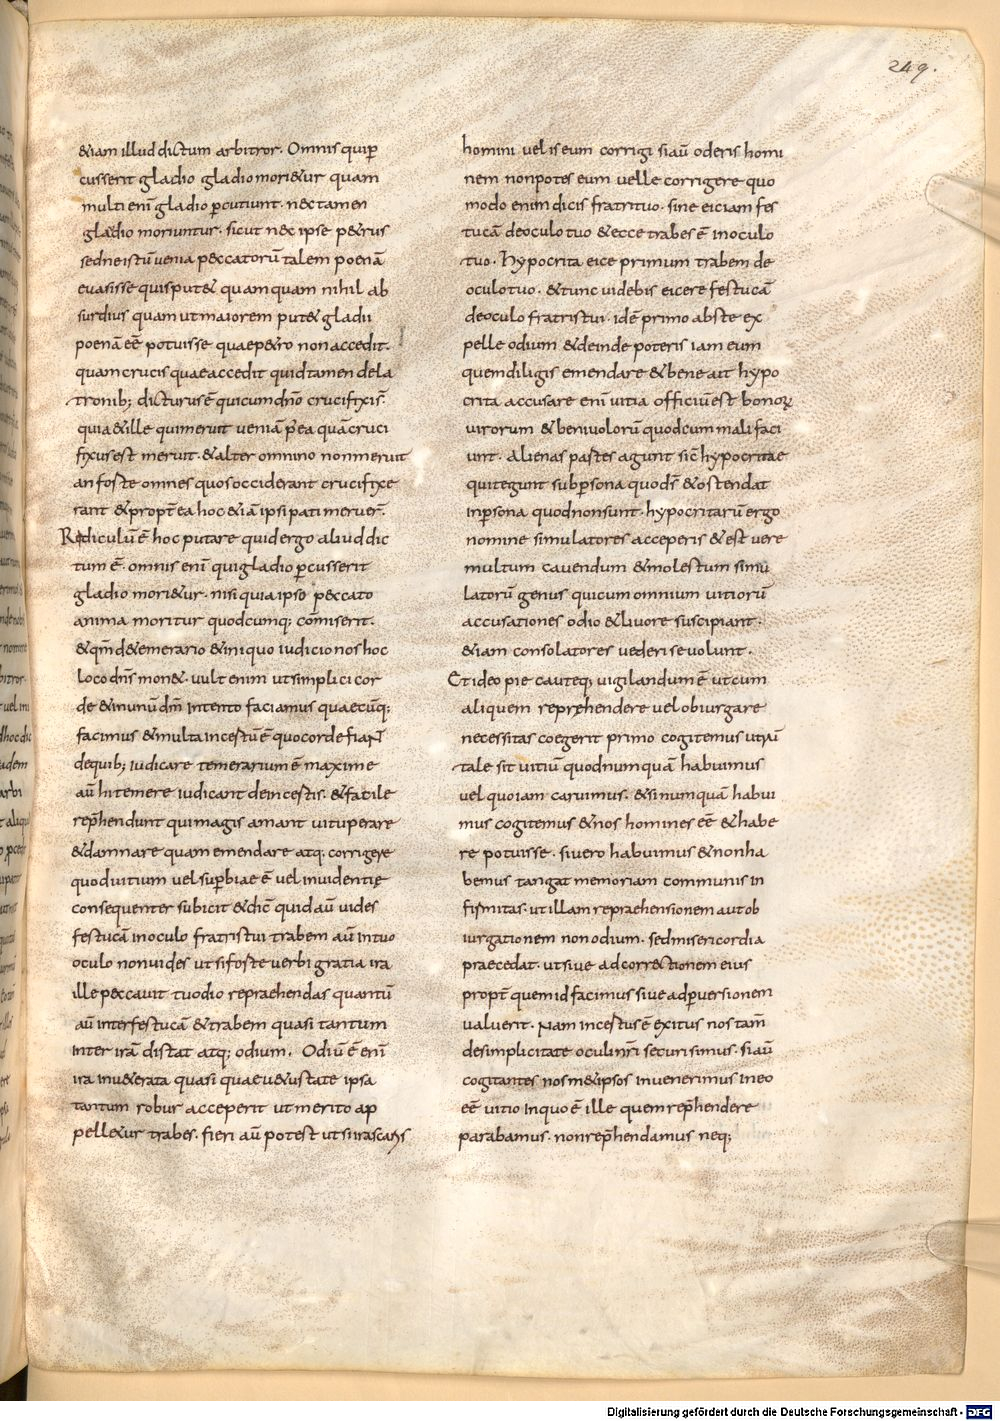 249.
&iam illud dictum arbitror. Omnis qui p̄
cusserit gladio gladio mori&ur quam
multi eni gladio p̄cutiunt. nec tamen
gladio moriuntur. sicut nec ipse p&rus
sed ne istū uenia peccatorū talem poenā
euasisse quis put& quam quam nihil ab
surdius quam ut maiorem put& gladii
poenā eē potuisse quae p&ro non accedit.
quam crucis quae accedit quid tamen de la
tronib; dicturus ē qui cum dn̄o crucifixi s̄.
quia & ille qui meruit ueniā p̄ ea quā cruci
fixus est meruit. & alter omnino non meruit
an foste omnes quos occiderant crucifixe
rant & propt̄ ea hoc & iā ipsi pati meruer̄.
Rediculū ē hoc putare quid ergo aliud dic
tum ē. omnis eni qui gladio p̄cusserit
gladio mori&ur. nisi quia ipso peccato
anima moritur quodcumq; cōmiserit.
& qm̄ d& temerario & iniquo iudicio nos hoc
loco dn̄s mon&. uult enim ut simplici cor
de & in unū dm̄ intento faciamus quaecūq;
facimus & multa incestū ē quo corde fiant
de quib; iudicare temerarium ē maxime
aū hi temere iudicant de incestis. & facile
rep̄hendunt qui magis amant uituperare
& damnare quam emendare atq; corrigere
quod uitium uel sup̄biae ē uel inuidentię
consequenter subicit & dic̄ quid aū uides
festucā in oculo fratris tui trabem aū in tuo
oculo non uides ut si foste uerbi gratia ira
ille peccauit tu odio repraehendas quantū
aū inter festucā & trabem quasi tantum
inter irā distat atq; odium. Odiū ē eni
ira inu&erata quasi quae u&ustate ipsa
tantum robur acceperit ut merito ap
pell&ur trabes. fieri aū potest ut si irascaris
homini uelis eum corrigi si aū oderis homi
nem non potes eum uelle corrigere quo
modo enim dicis fratri tuo. sine eiciam fes
tucā de oculo tuo & ecce trabes ē in oculo
tuo. hypocrita eice primum trabem de
oculo tuo. & tunc uidebis eicere festucā
de oculo fratris tui. id ē primo abs te ex
pelle odium & deinde poteris iam eum
quem diligis emendare & bene ait hypo
crita accusare eni uitia officiū est bonoꝝ
uirorum & beniuolorū quod cum mali faci
unt. alienas pastes agunt sic̄ hypocritae
qui tegunt sub p̄sona quod s̄ & ostendat
in p̄sona quod non sunt. hypocritarū ergo
nomine simulatores acceperis & est uere
multum cauendum & molestum simu
latorū genus qui cum omnium uitiorū
accusationes odio & liuore suscipiant.
&iam consolatores uederi se uolunt.
Et ideo pie cauteq; uigilandum ē ut cum
aliquem reprehendere uel obiurgare
necessitas coegerit primo cogitemus utrū
tale sit uitiū quod numquā habuimus
uel quo iam caruimus. & si numquā habui
mus cogitemus & nos homines eē & habe
re potuisse. si uero habuimus & non ha
bemus tangat memoriam communis in
fismitas. ut illam repraehensionem aut ob
iurgationem non odium. sed misericordia
praecedat. ut siue ad correctionem eius
propt̄ quem id facimus siue ad p̄uersionem
ualuerit. Nam incestus ē exitus nos tam̄
de simplicitate oculi nr̄i securi simus. si aū
cogitantes nosm&ipsos inuenerimus in eo
eē uitio in quo ē ille quem rep̄hendere
parabamus. non rep̄hendamus neq;
Digitalisierung gefördert durch die Deutsche Forschungsgemeinschaft - DFG